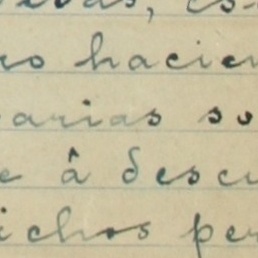 evas, es
ro hacien
arias so
e â descu
ichos per